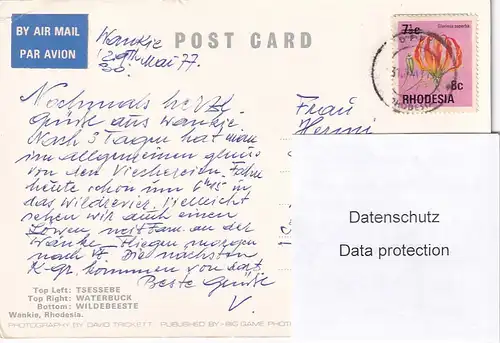 BY AIR MAIL
PAR AVION
POST CARD
Wankie
29th
30. Mai 77.
7½c
Gloriosa superba
8c
RHODESIA
Nochmals herzl.
Grüße aus Wankie.
Nach 3 Tagen hat man
im Allgemeinen genug
von den Viechereien. Fahre
heute schon um 6 15 in
das Wildrevier. Vielleicht
sehen wir auch einen
Löwen,
Wankie - Fliegen morgen
nach VF. Die nächsten
K-gr. kommen von dort.
Beste Grüße
V.
Frau
Hermi
Datenschutz
Data protection
Top Left: TSESSEBE
Top Right: WATERBUCK
Bottom: WILDEBEESTE
Wankie, Rhodesia.
PHOTOGRAPHY BY DAVID TRICKETT PUBLISHED BY-BIG GAME PHOT